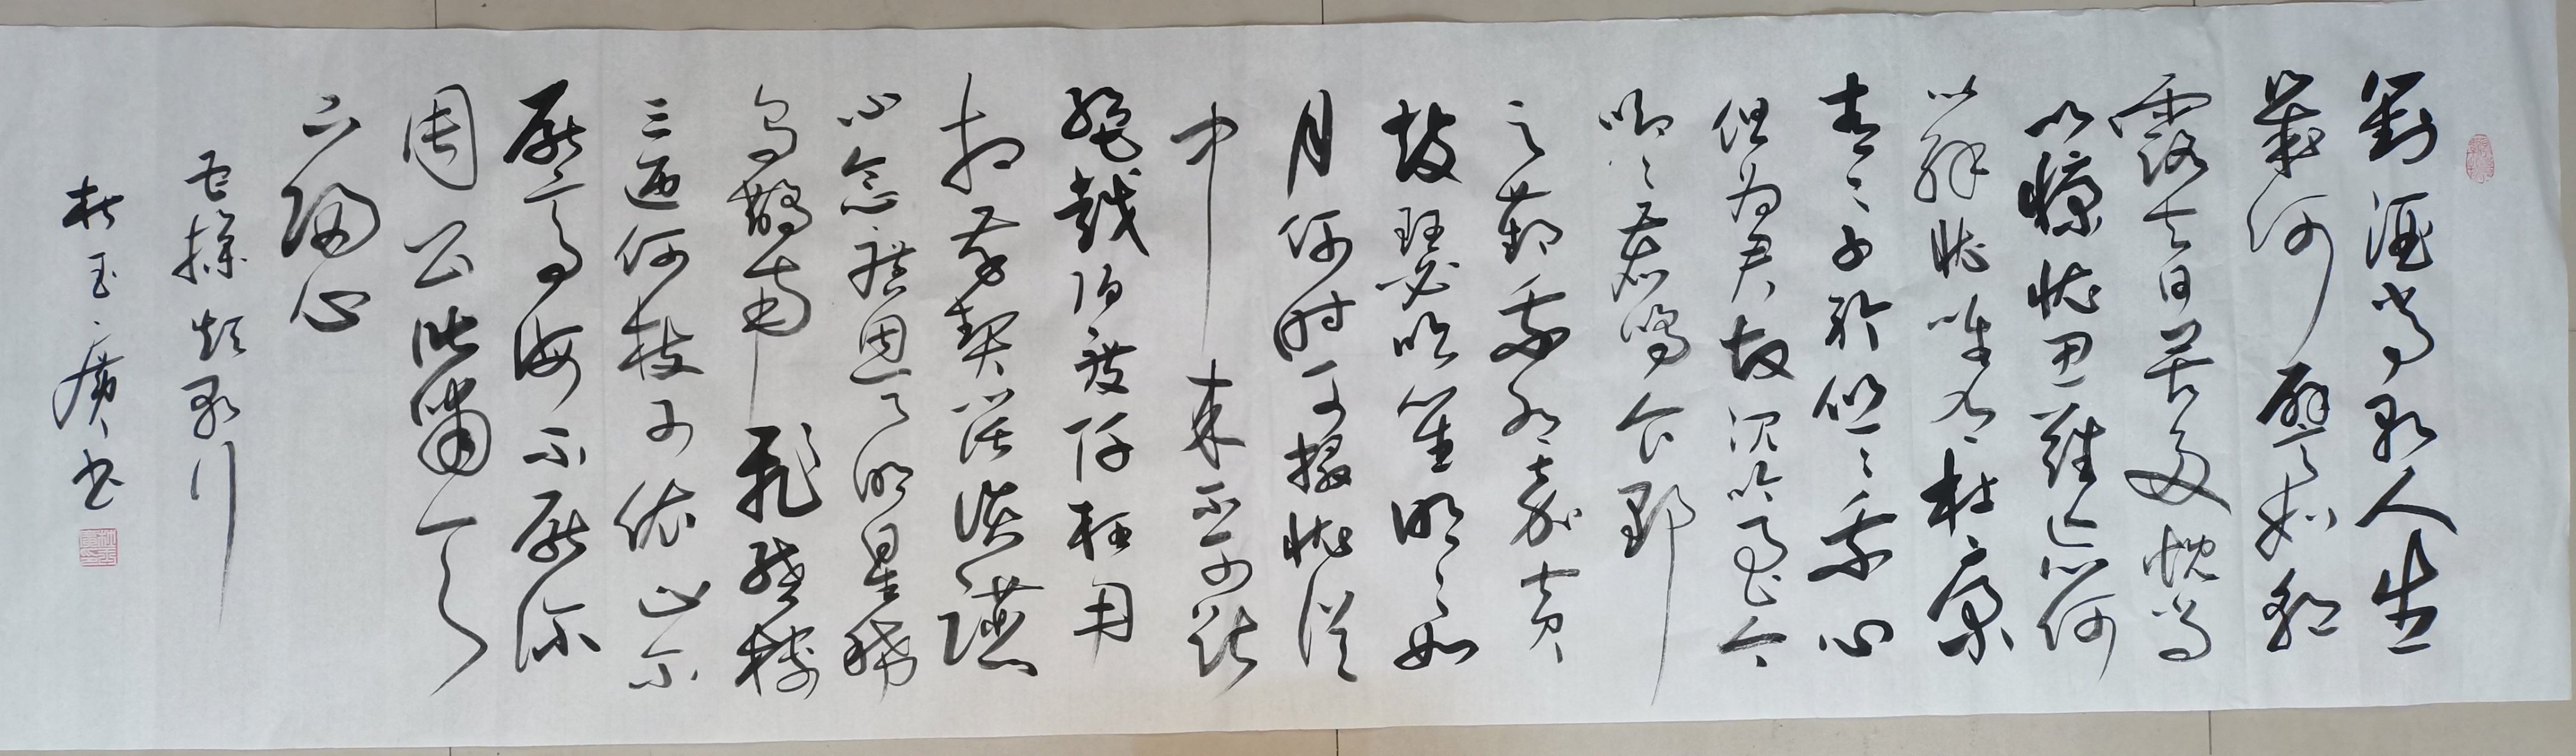 對酒當歌人生
幾何譬如朝
露去日苦多慨當
以慷憂思難忘何
以解憂唯有杜康
青青子衿悠悠我心
但为君故沉吟至今
呦呦鹿鳴食野
之苹我有嘉賓
鼓瑟吹笙明明如
月何时可掇憂從
中来不可断
越陌度阡枉用
相存契闊談讌
心念舊恩月明星稀
烏鵲南飛繞樹
三匝何枝可依山不
厭高海不厭深
周公吐哺天
下歸心
曹操短歌行
杜玉廣书